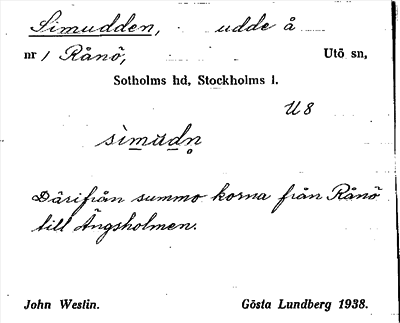 Simudden, udde å
nr 1 Rånö, Utö sn,
Sotholms hd, Stockholms l.
U 8
sìmu̲dn̥
Därifrån summo korna från Rånö
till Ängsholmen.
John Westin. Gösta Lundberg 1938.